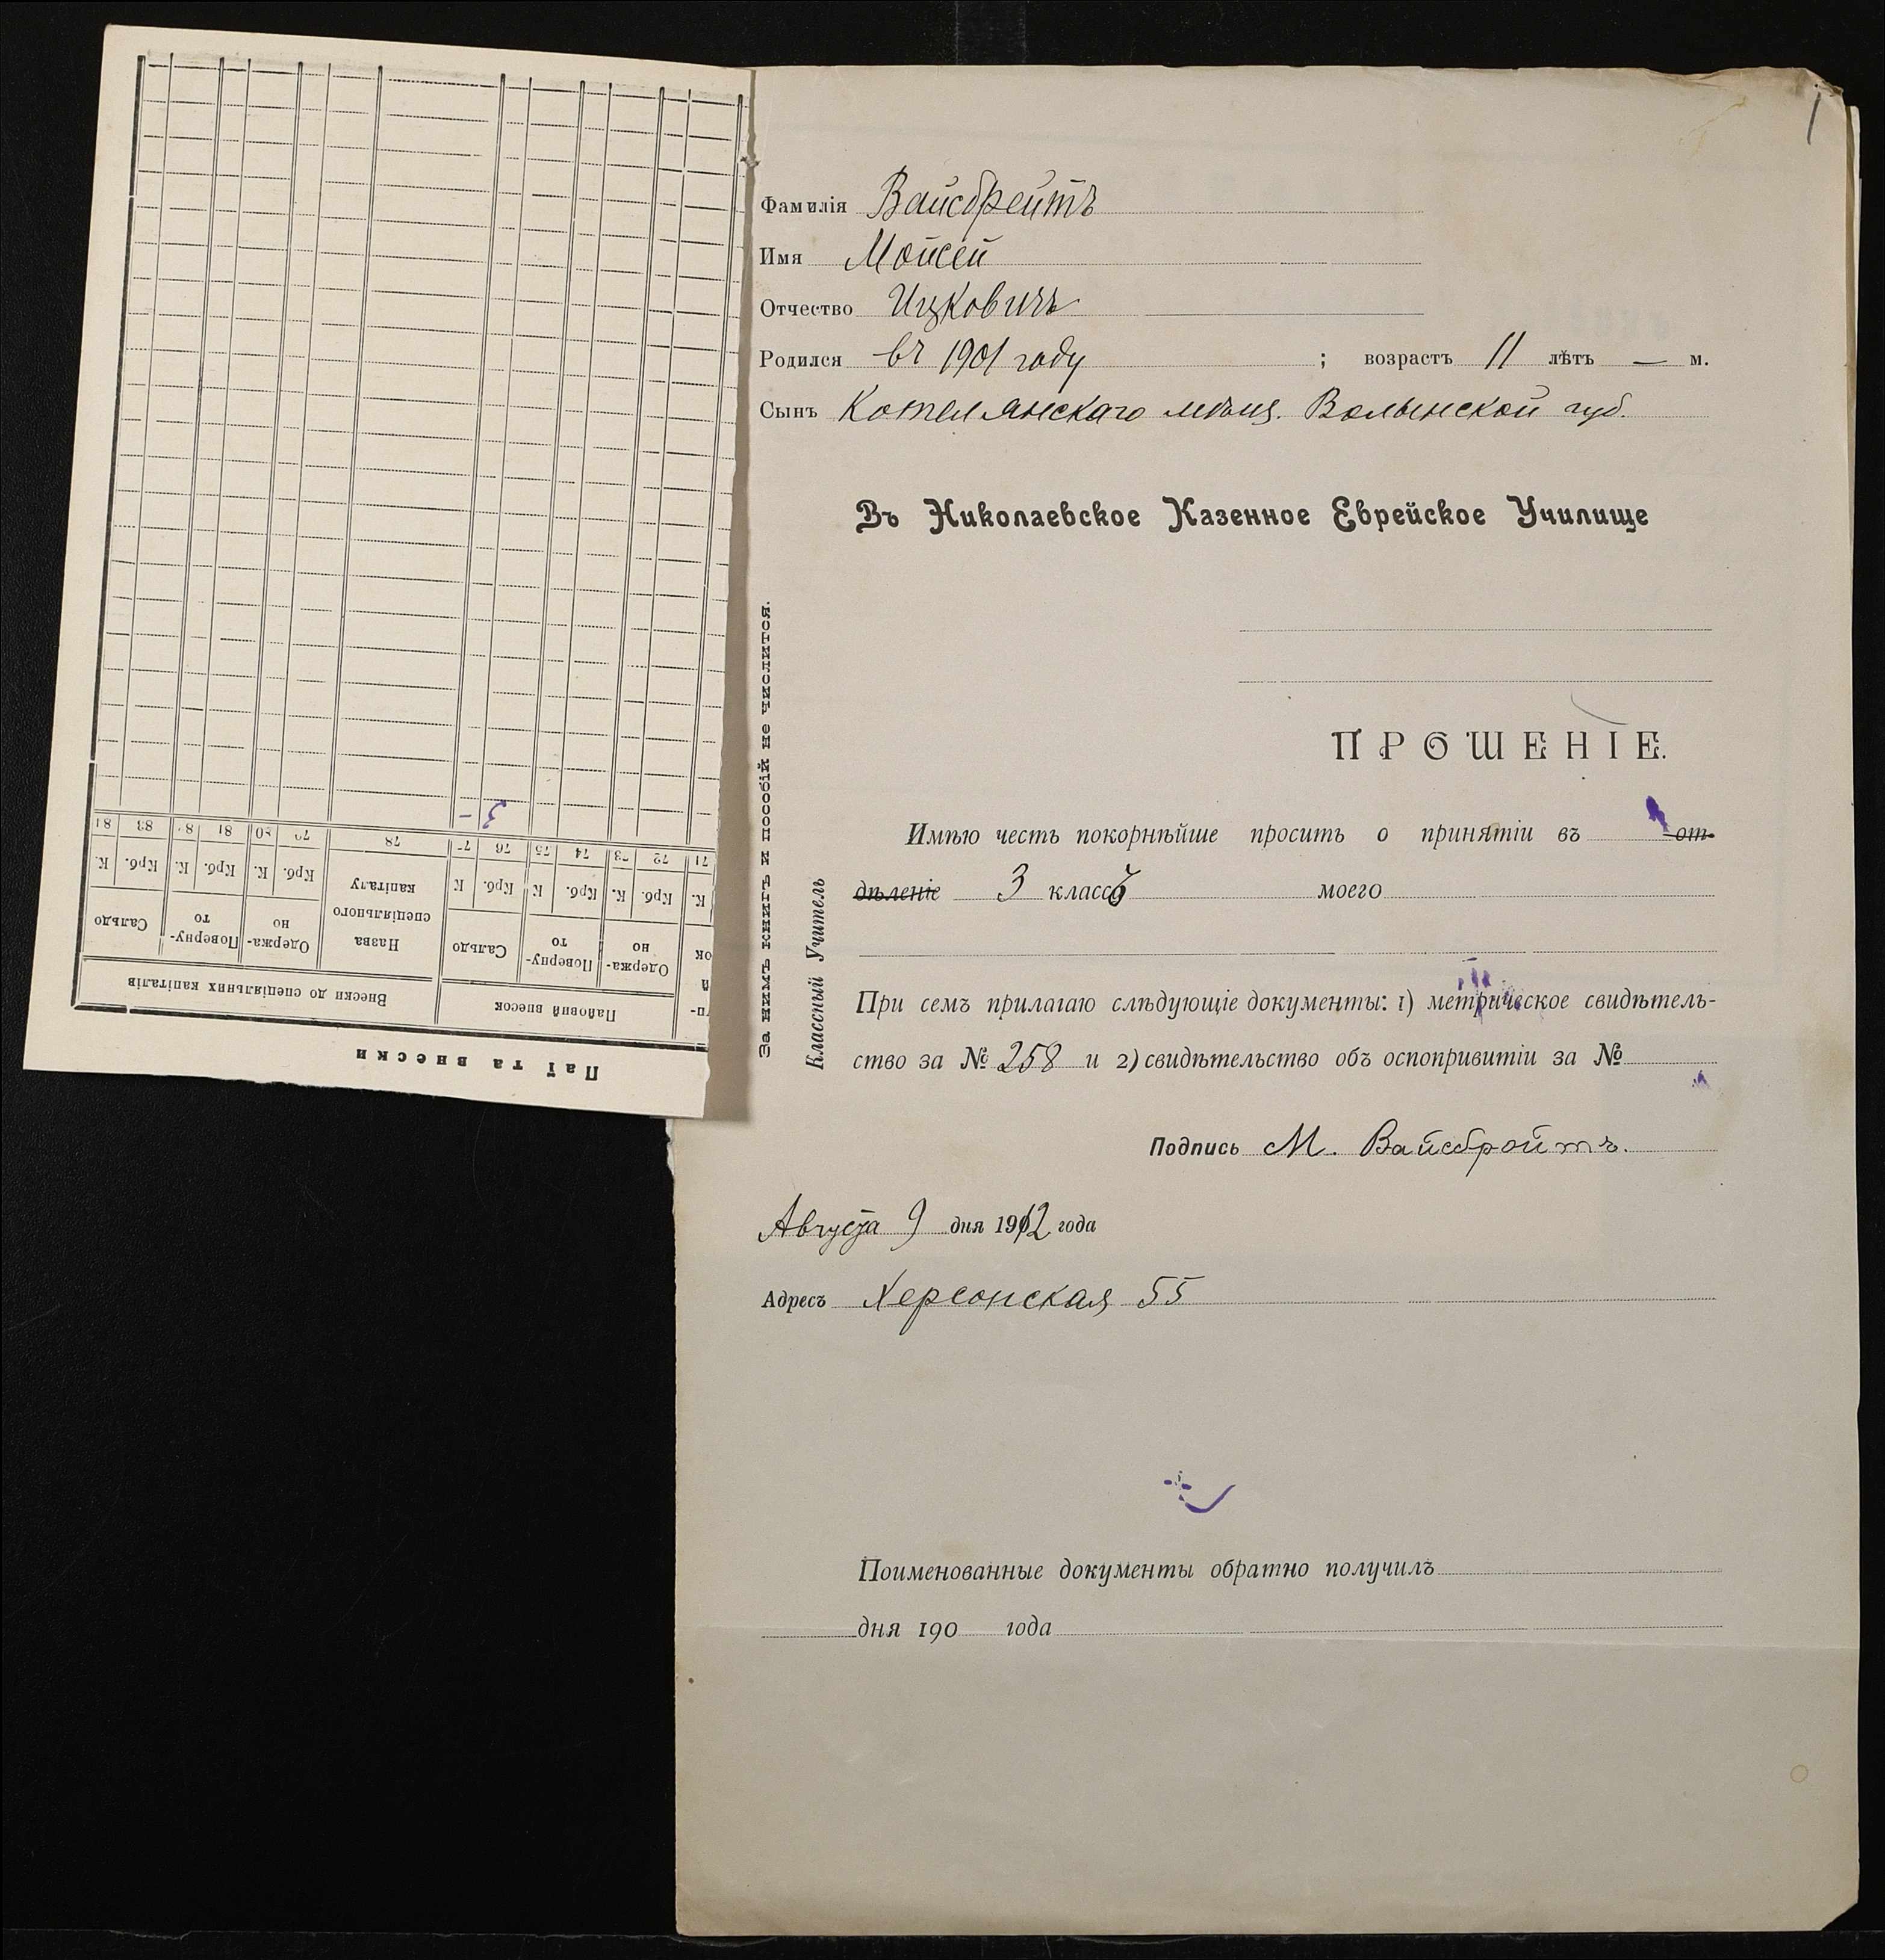 1
Фамилія Вайсбрейтъ
Имя Мойсей
Отчество Ицковичъ
Родился въ 1901 году ; возрастъ 11 лѣтъ — м.
Сынъ Котелянскаго мѣщ. Волынской губ.
Въ Николаевское Казенное Еврейское Училище
ПРОШЕНІЕ.
Имѣю честь покорнѣйше просить о принятіи въ от-
дѣленіе 3 классъ моего
При семъ прилагаю слѣдующіе документы: 1) метрическое свидѣтель-
ство за № 258 и 2) свидѣтельство объ оспопривитіи за №
Подпись М. Вайсбройтъ.
Августа 9 дня 1912 года
Адресъ Херсонская 55
Поименованные документы обратно получилъ
дня 190 года
За нимъ книгъ и пособій не числится.
Классный Учитель
Паї та внески
Пайовий внесок
Внески до спеціяльних капіталів
ок
Одержа-но
Поверну-то
Сальдо
Назва спеціяльного капіталу
Одержа-но
Поверну-то
Сальдо
К. Крб. К. Крб. К Крб. К Крб. К. Крб. К. Крб. К.
71 72 73 74 75 76 78 81 83
3 -